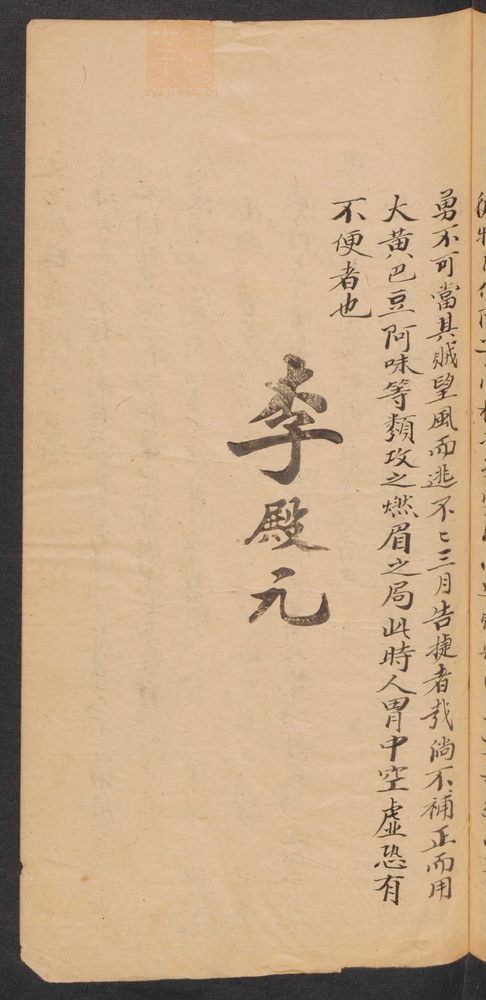 勇不可當其賊望風而逃不〻三月告捷者哉倘不補正而用
大黃巴豆阿味等類攻之燃眉之局此時人胃中空虛恐有
不便者也
李殿元